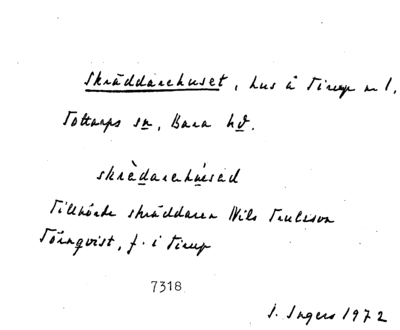 Skräddarehuset, hus å Tirup nr 1,
Tottarps sn, Bara hd.
skrèdarehúsəd
Tillhörde skräddaren Nils Trulsson
Törnqvist, f. i Tirup
7318
I. Ingers 1972